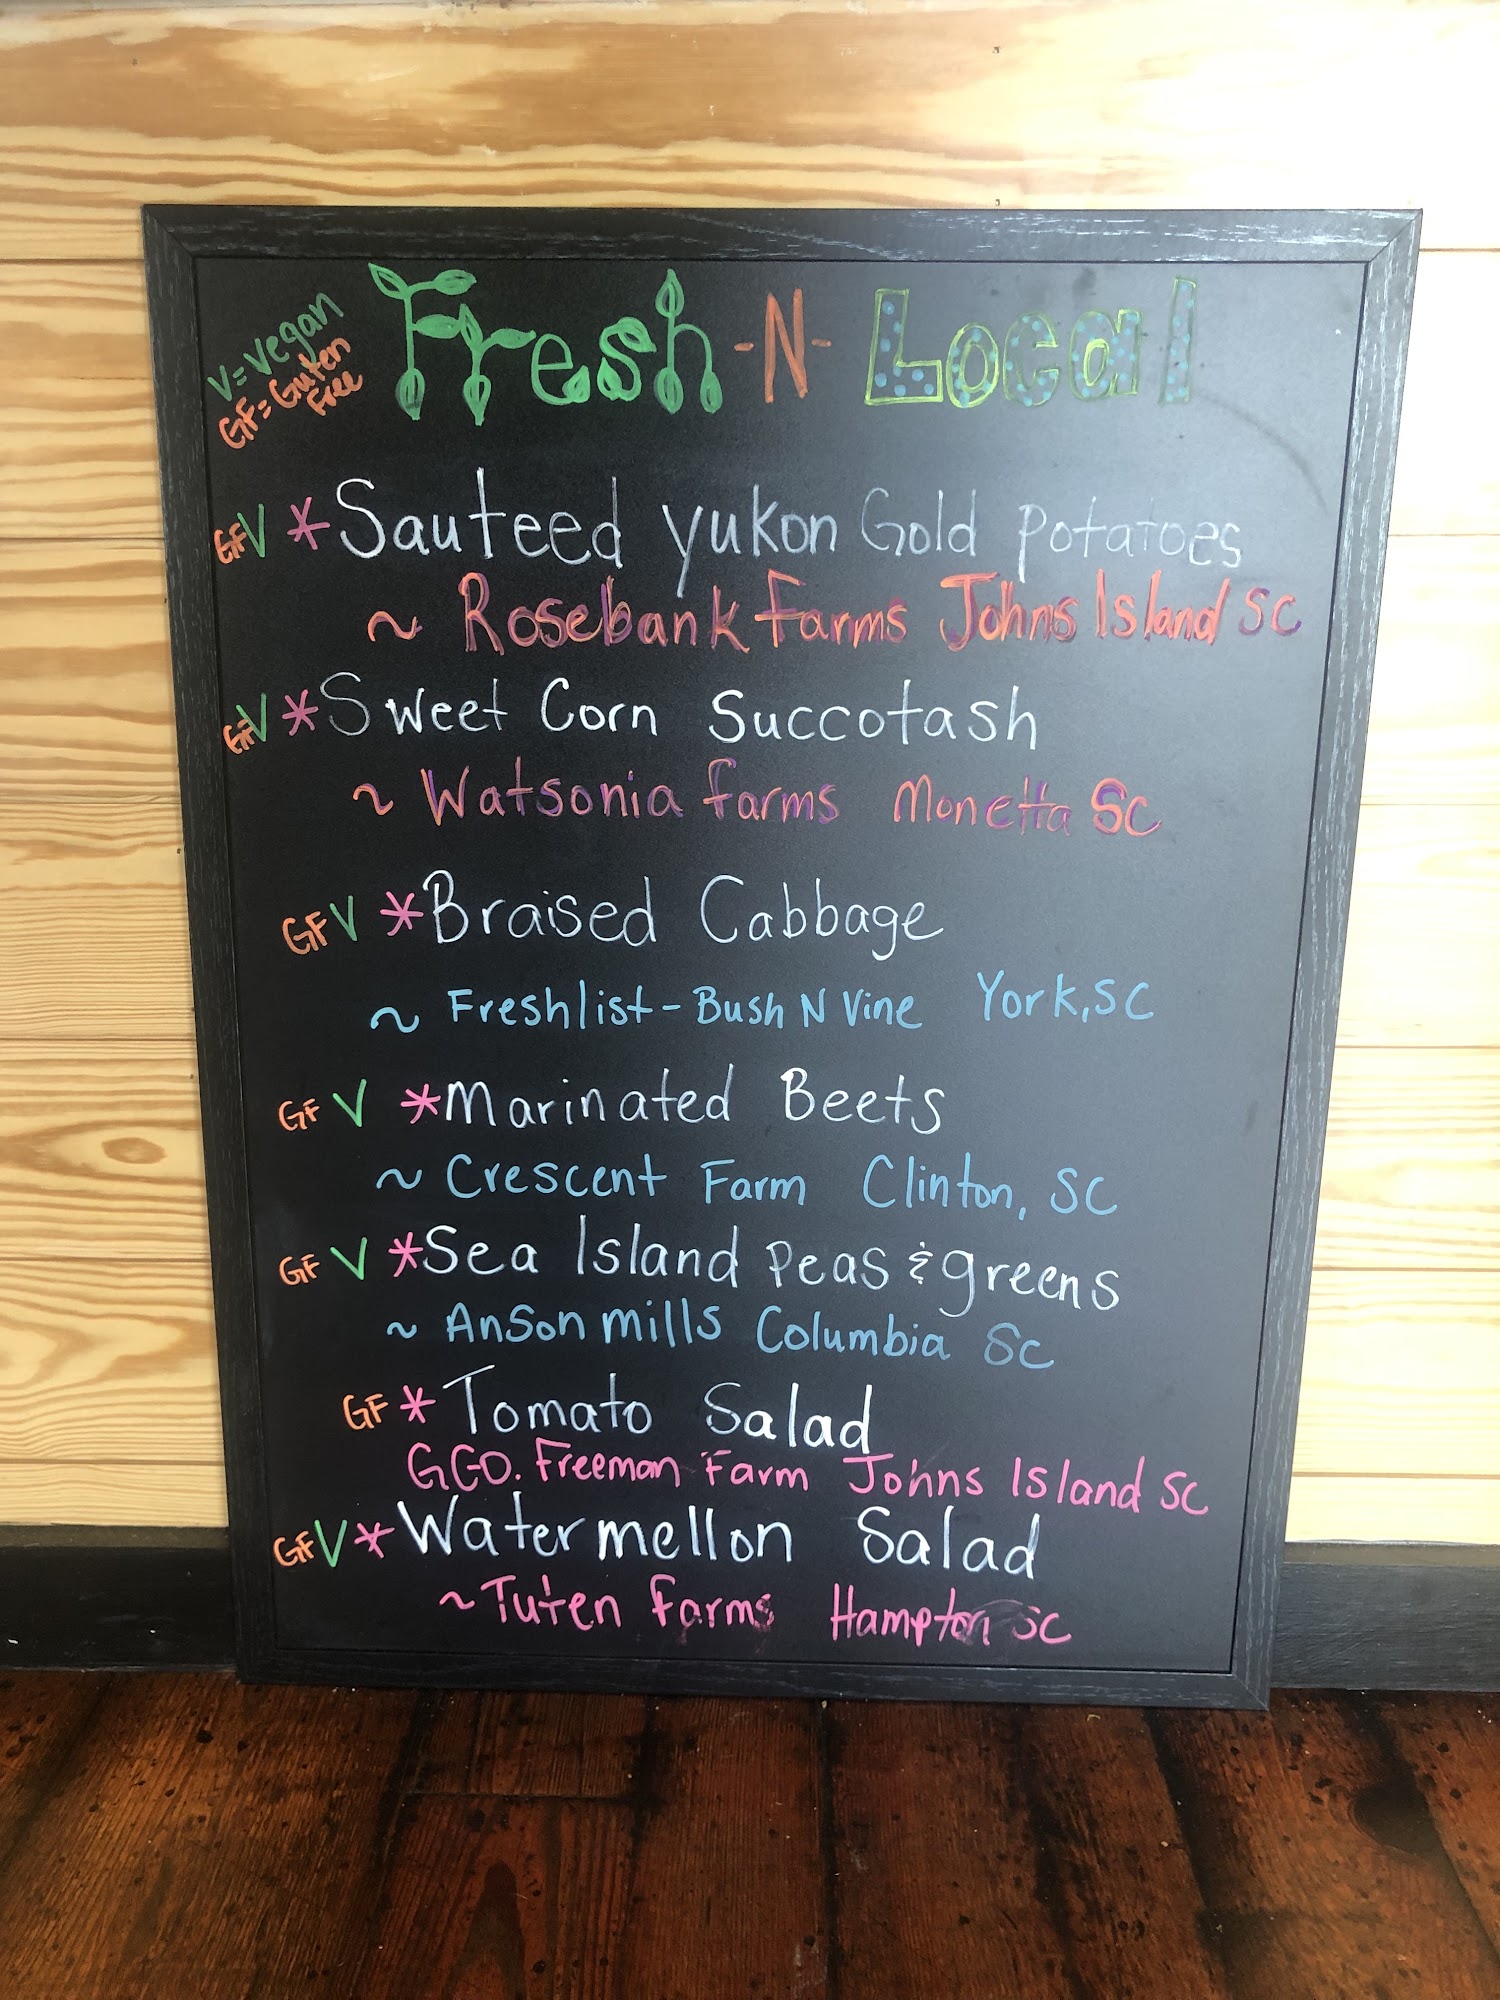 V = Vegan
GF = Guten
Free
Fresh -N- Local
GF V * Sauteed yukon Gold potatoes
~ Rosebank Farms Johns Island SC
GF V * Sweet Corn Succotash
~ Watsonia farms Monetta SC
GF V * Braised Cabbage
~ Freshlist - Bush N Vine York, SC
GF V * Marinated Beets
~ Crescent Farm Clinton, SC
GF V * Sea Island Peas & greens
~ Anson mills Columbia SC
GF * Tomato Salad
GEO. Freeman Farm Johns Island SC
GF V * Watermellon Salad
~ Tuten farms Hampton SC